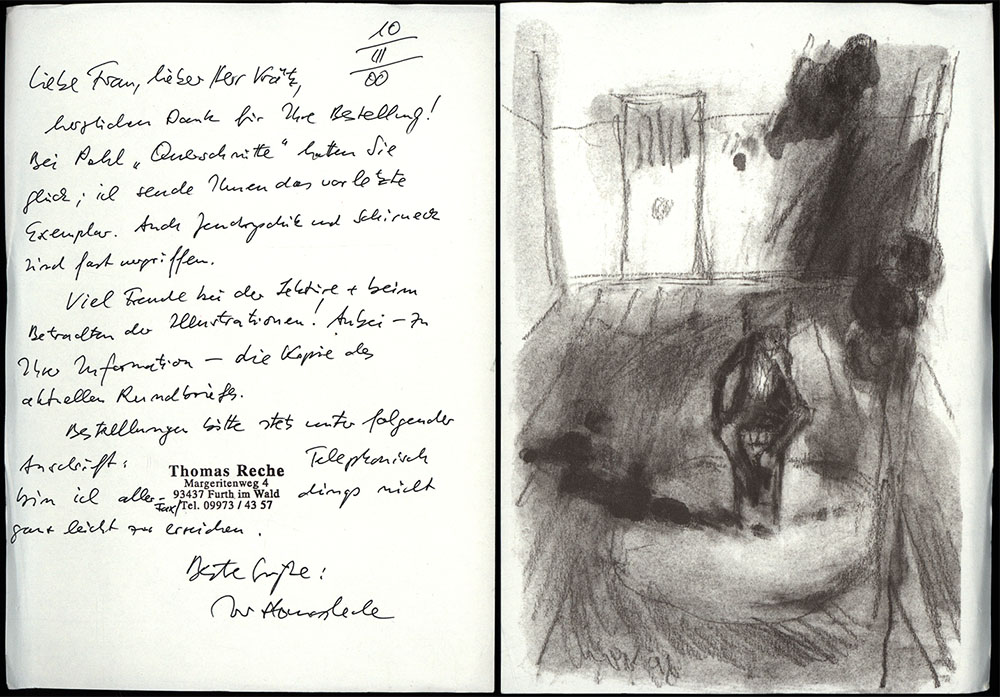 10
III
00
Liebe Frau, lieber Herr Krätz,
herzlichen Dank für Ihre Bestellung!
Bei Pohl „Querschnitte“ hatten Sie
Glück; ich sende Ihnen das vorletzte
Exemplar. Auch und Schirneck
sind fast vergriffen.
Viel Freude bei der Lektüre + beim
Betrachten der Illustrationen! Anbei – zu
Ihrer Information – die Kopie des
aktuellen Rundbriefs.
Bestellungen bitte stets unter folgender
Anschrift:
Thomas Reche
Margeritenweg 4
93437 Furth im Wald
Fax/Tel. 09973 / 43 57
Telephonisch
bin ich aller- dings nicht
ganz leicht zu erreichen.
Beste Grüße:
Ihr Thomas Reche